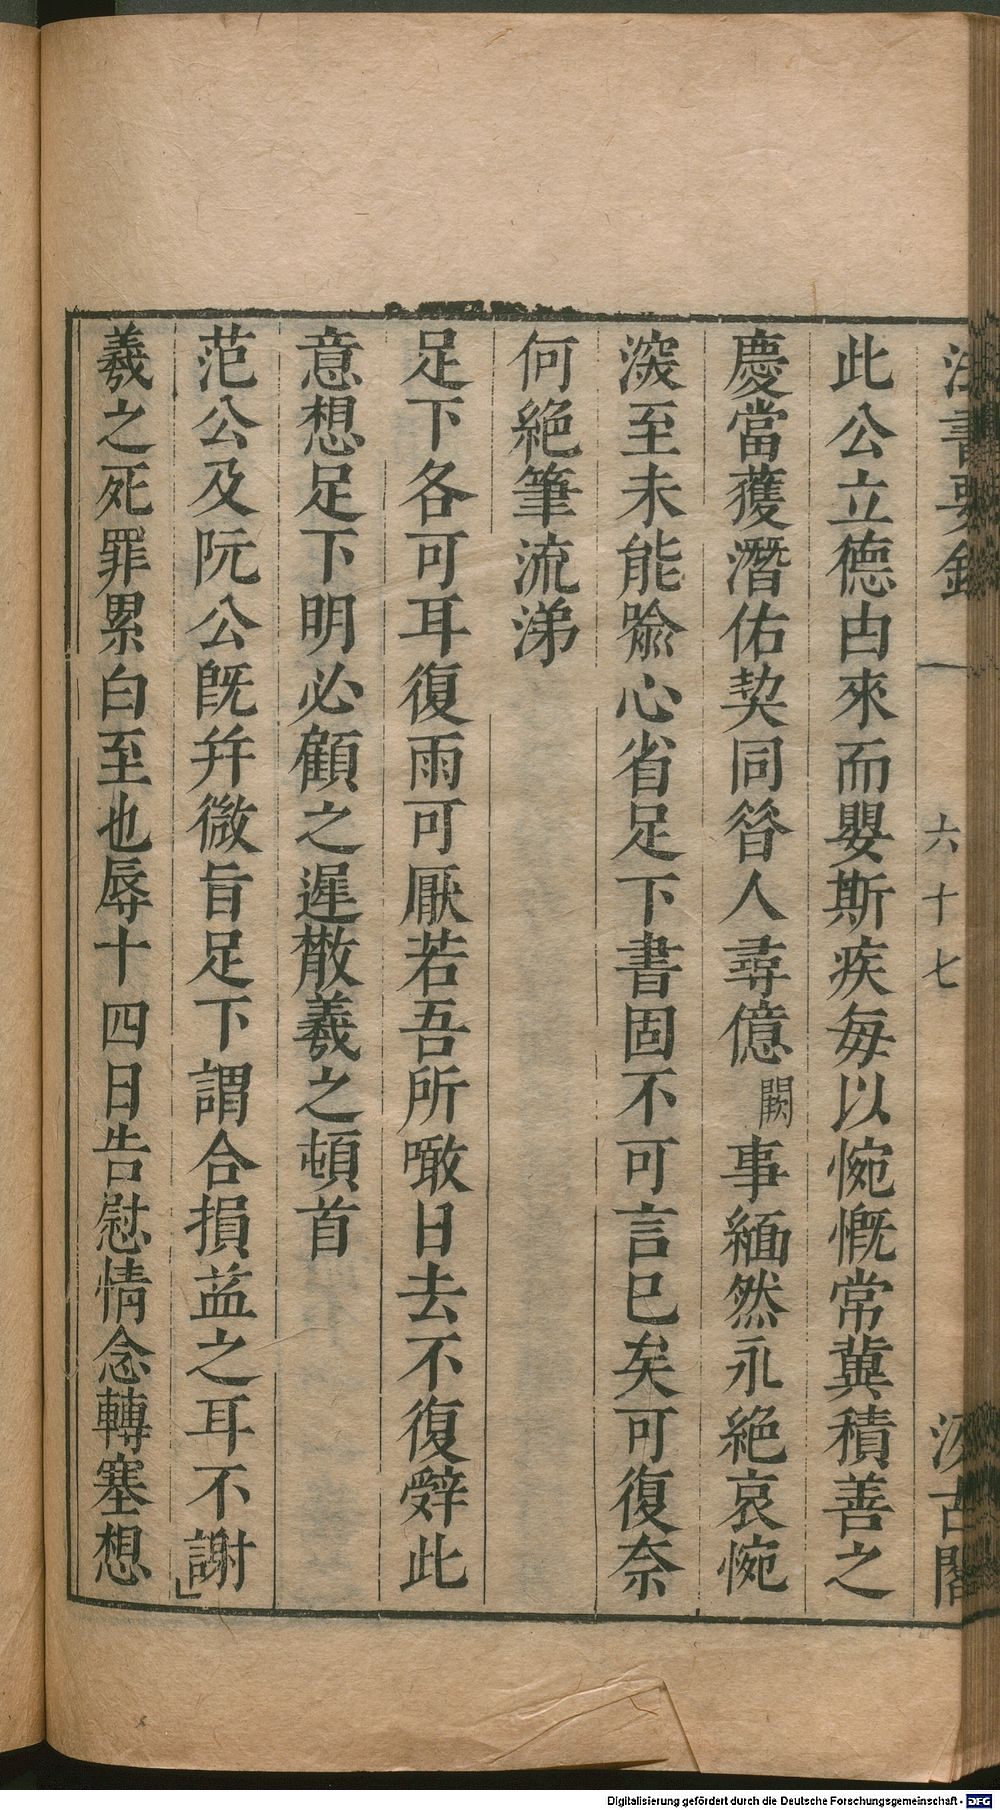 法書要錄
六十七
汲古閣
此公立德由來而嬰斯疾每以惋慨常冀積善之
慶當獲潛佑契同咎人尋億闕事緬然永絕哀惋
深至未能踰心省足下書固不可言已矣可復奈
何絕筆流涕
足下各可耳復雨可厭若吾所噉日去不復辭此
意想足下明必顧之遲散羲之頓首
范公及阮公旣幷微旨足下謂合損益之耳不謝
羲之死罪累白至也辱十四日告慰情念轉塞想
Digitalisierung gefördert durch die Deutsche Forschungsgemeinschaft - DFG